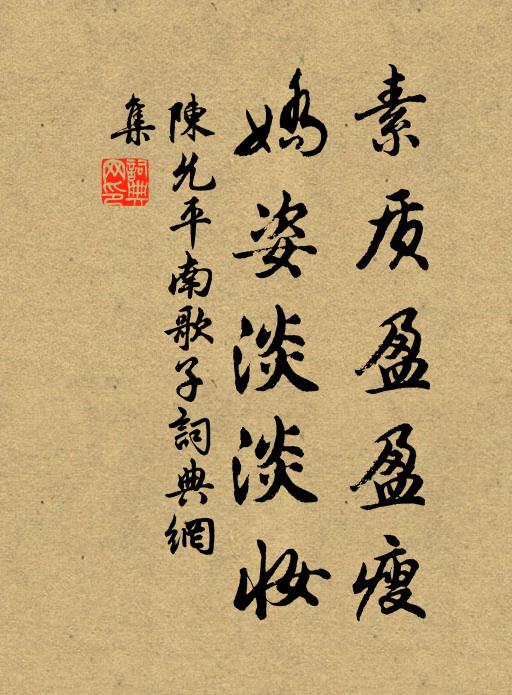 素质盈盈瘦
嬌姿淡淡妝
陳允平南歌子詞典網
集
詞典
网印